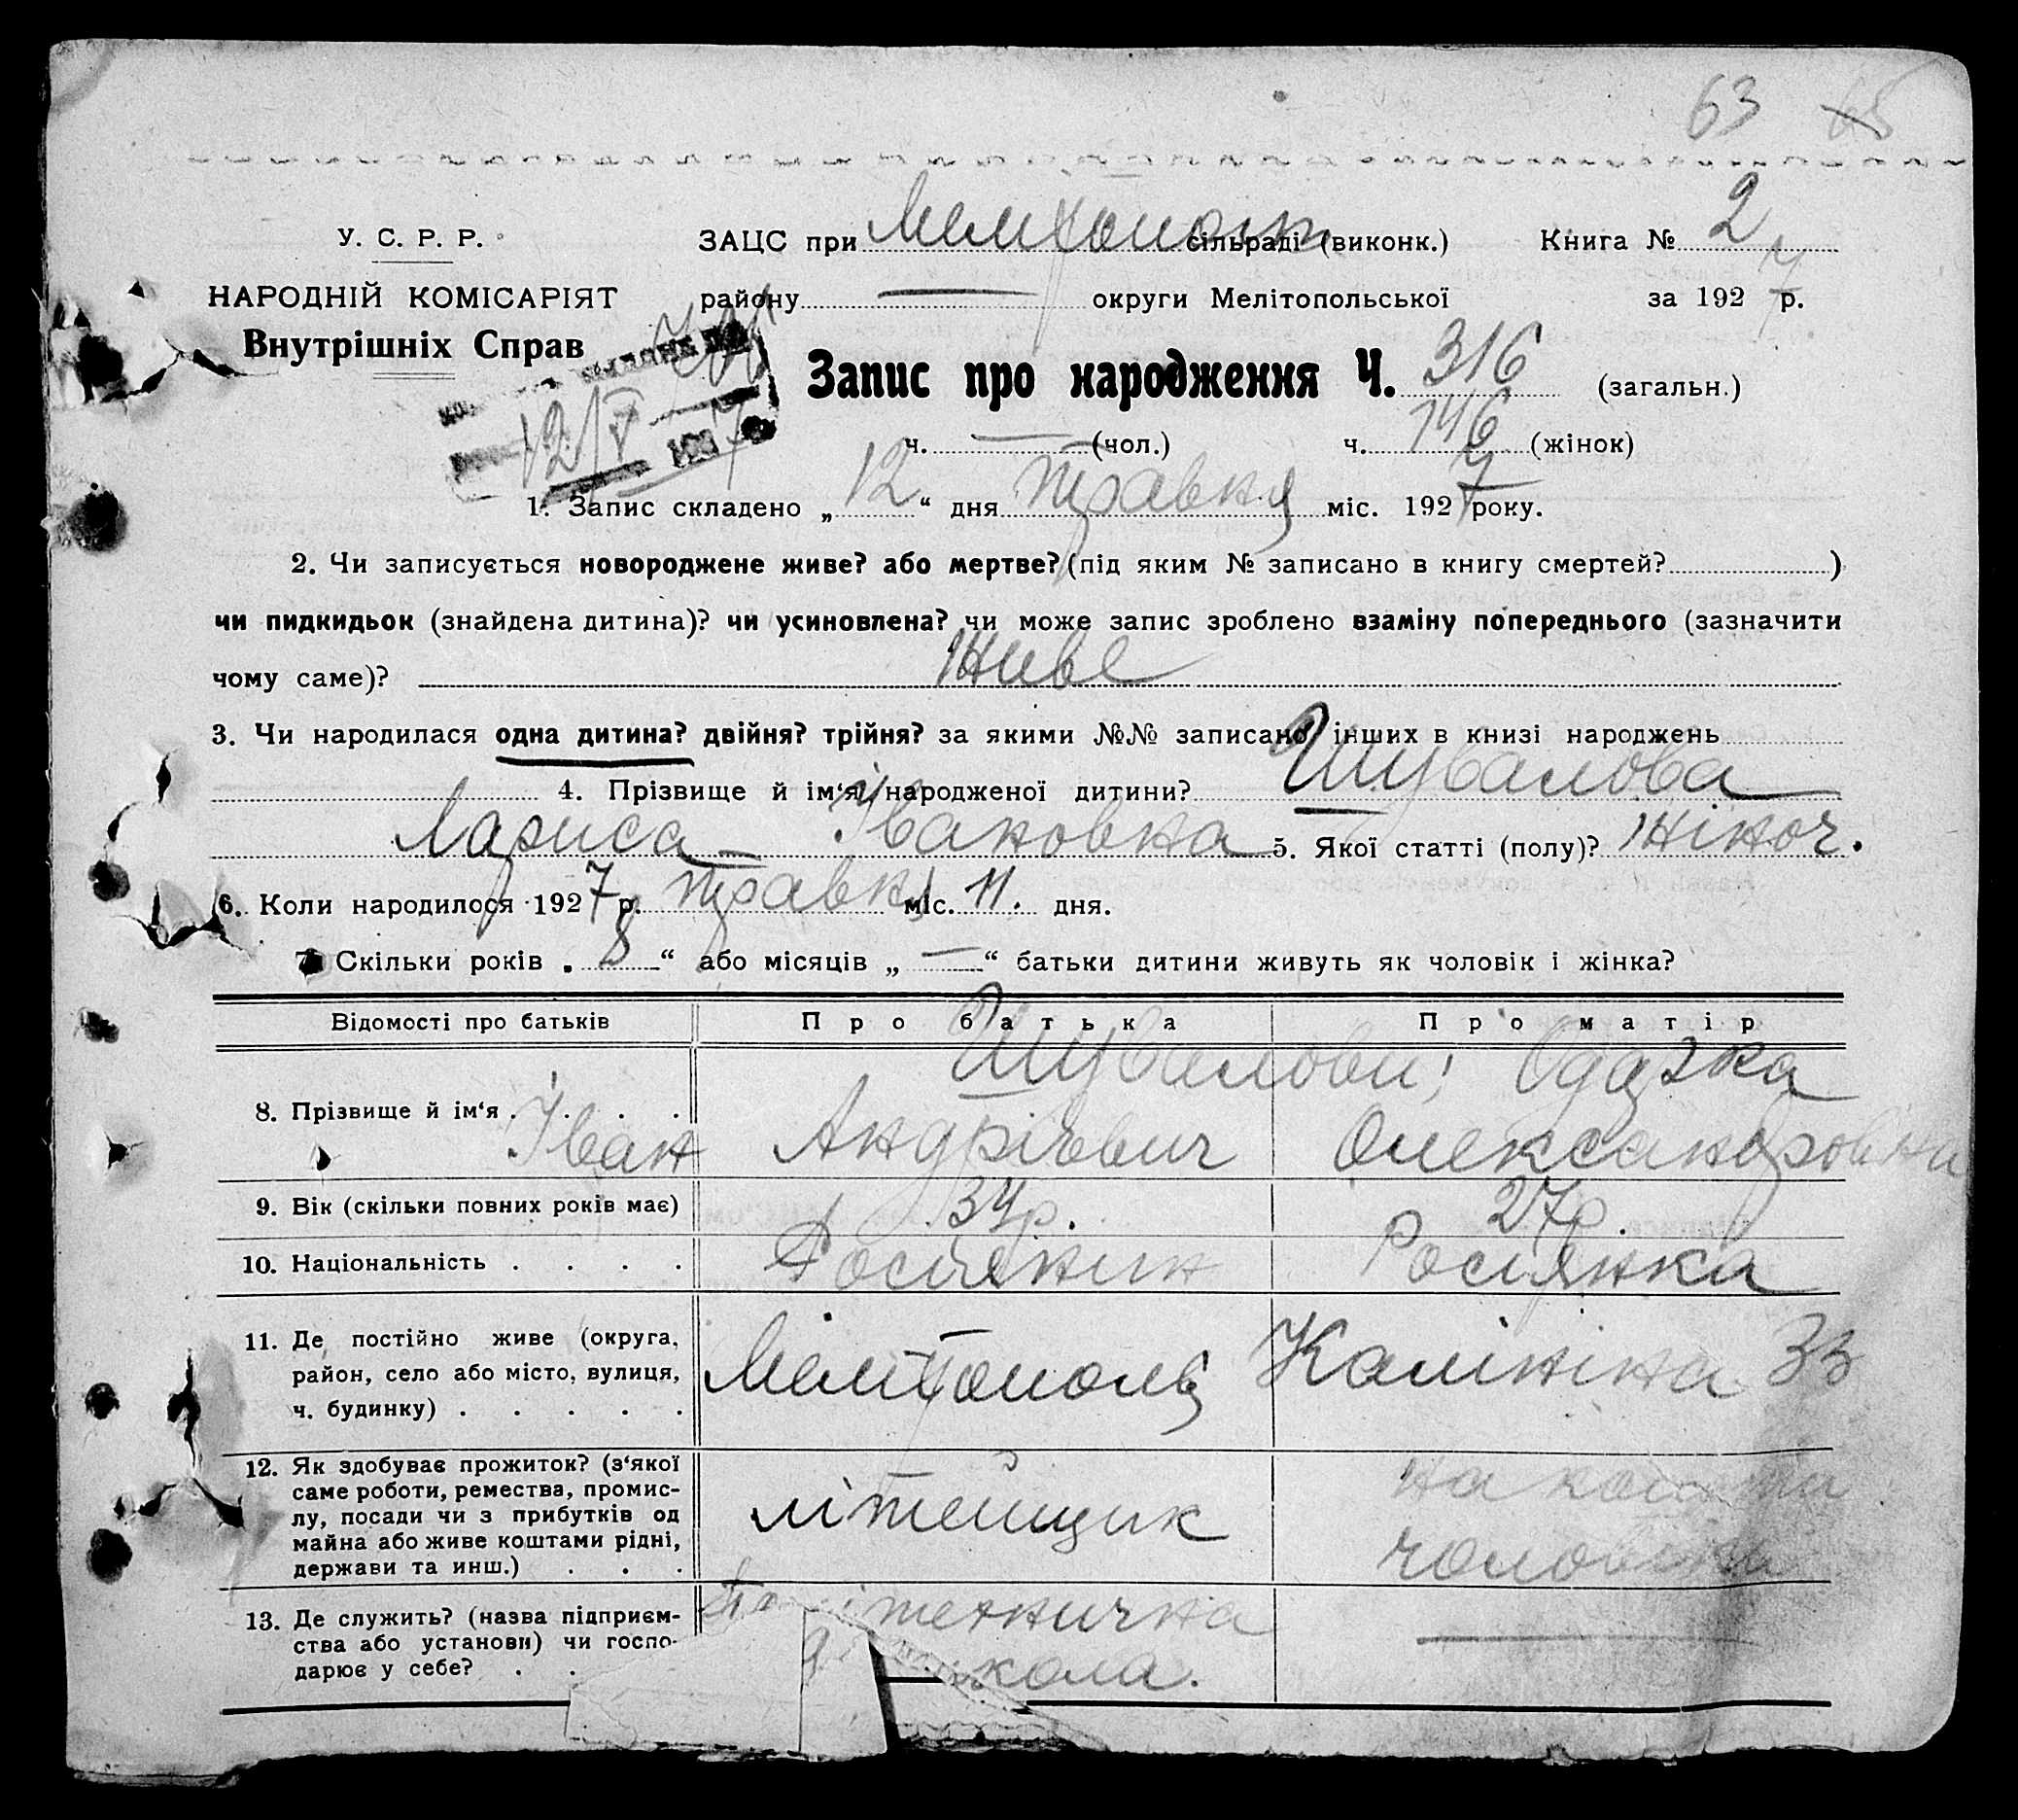 63 65
У. С. Р. Р. ЗАЦС при Мелітопольск сільраді (виконк.) Книга № 2
НАРОДНІЙ КОМІСАРІЯТ району — округи Мелітопольської за 1927 р.
Внутрішніх Справ
Запис про народження Ч. 316 (загальн.)
12/V 1927
ч. — (чол.) ч. 146 (жінок)
1. Запис складено „12“ дня травня міс. 1927 року.
2. Чи записується новороджене живе? або мертве? (під яким № записано в книгу смертей? )
чи пидкидьок (знайдена дитина)? чи усиновлена? чи може запис зроблено взаміну попереднього (зазначити
чому саме)? Живе
3. Чи народилася одна дитина? двійня? трійня? за якими №№ записано інших в книзі народжень
4. Прізвище й ім‘я народженої дитини? Шувалова
Лариса Івановна 5. Якої статті (полу)? жіноч.
6. Коли народилося 1927 р. травня міс. 11. дня.
7. Скільки років „8“ або місяців „—“ батьки дитини живуть як чоловік і жінка?
Відомості про батьків Про батька Про матір
Шувалови; Одарка
8. Прізвище й ім‘я . . . .
Іван Андрієвич Олександровна
9. Вік (скільки повних років має) 34 р. 27 р.
10. Національність . . . . Росіянин Росіянка
11. Де постійно живе (округа,
район, село або місто, вулиця, Мелітополь Калініна 33
ч. будинку) . . . . .
12. Як здобуває прожиток? (з‘якої
саме роботи, ремества, промис- на кошти
лу, посади чи з прибутків од літейщик
майна або живе коштами рідні, чоловіка
держави та инш.) . . .
13. Де служить? (назва підприєм- технична
ства або установи) чи госпо- —
дарює у себе? . . школа.